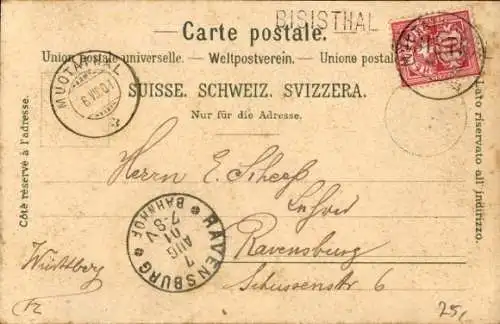 BISISTHAL
Carte postale.
Union postale universelle. – Weltpostverein. – Unione postale
SUISSE. SCHWEIZ. SVIZZERA.
Nur für die Adresse.
Côté réservé à l'adresse.
Lato riservato all' indirizzo.
MUOTATHAL
6 VIII 01
10
Herrn E. Scheeß
Ravensburg
Schussenstr 6
Württbg
RAVENSBURG
BAHNHOF
7
AUG
01
7-8V
25,